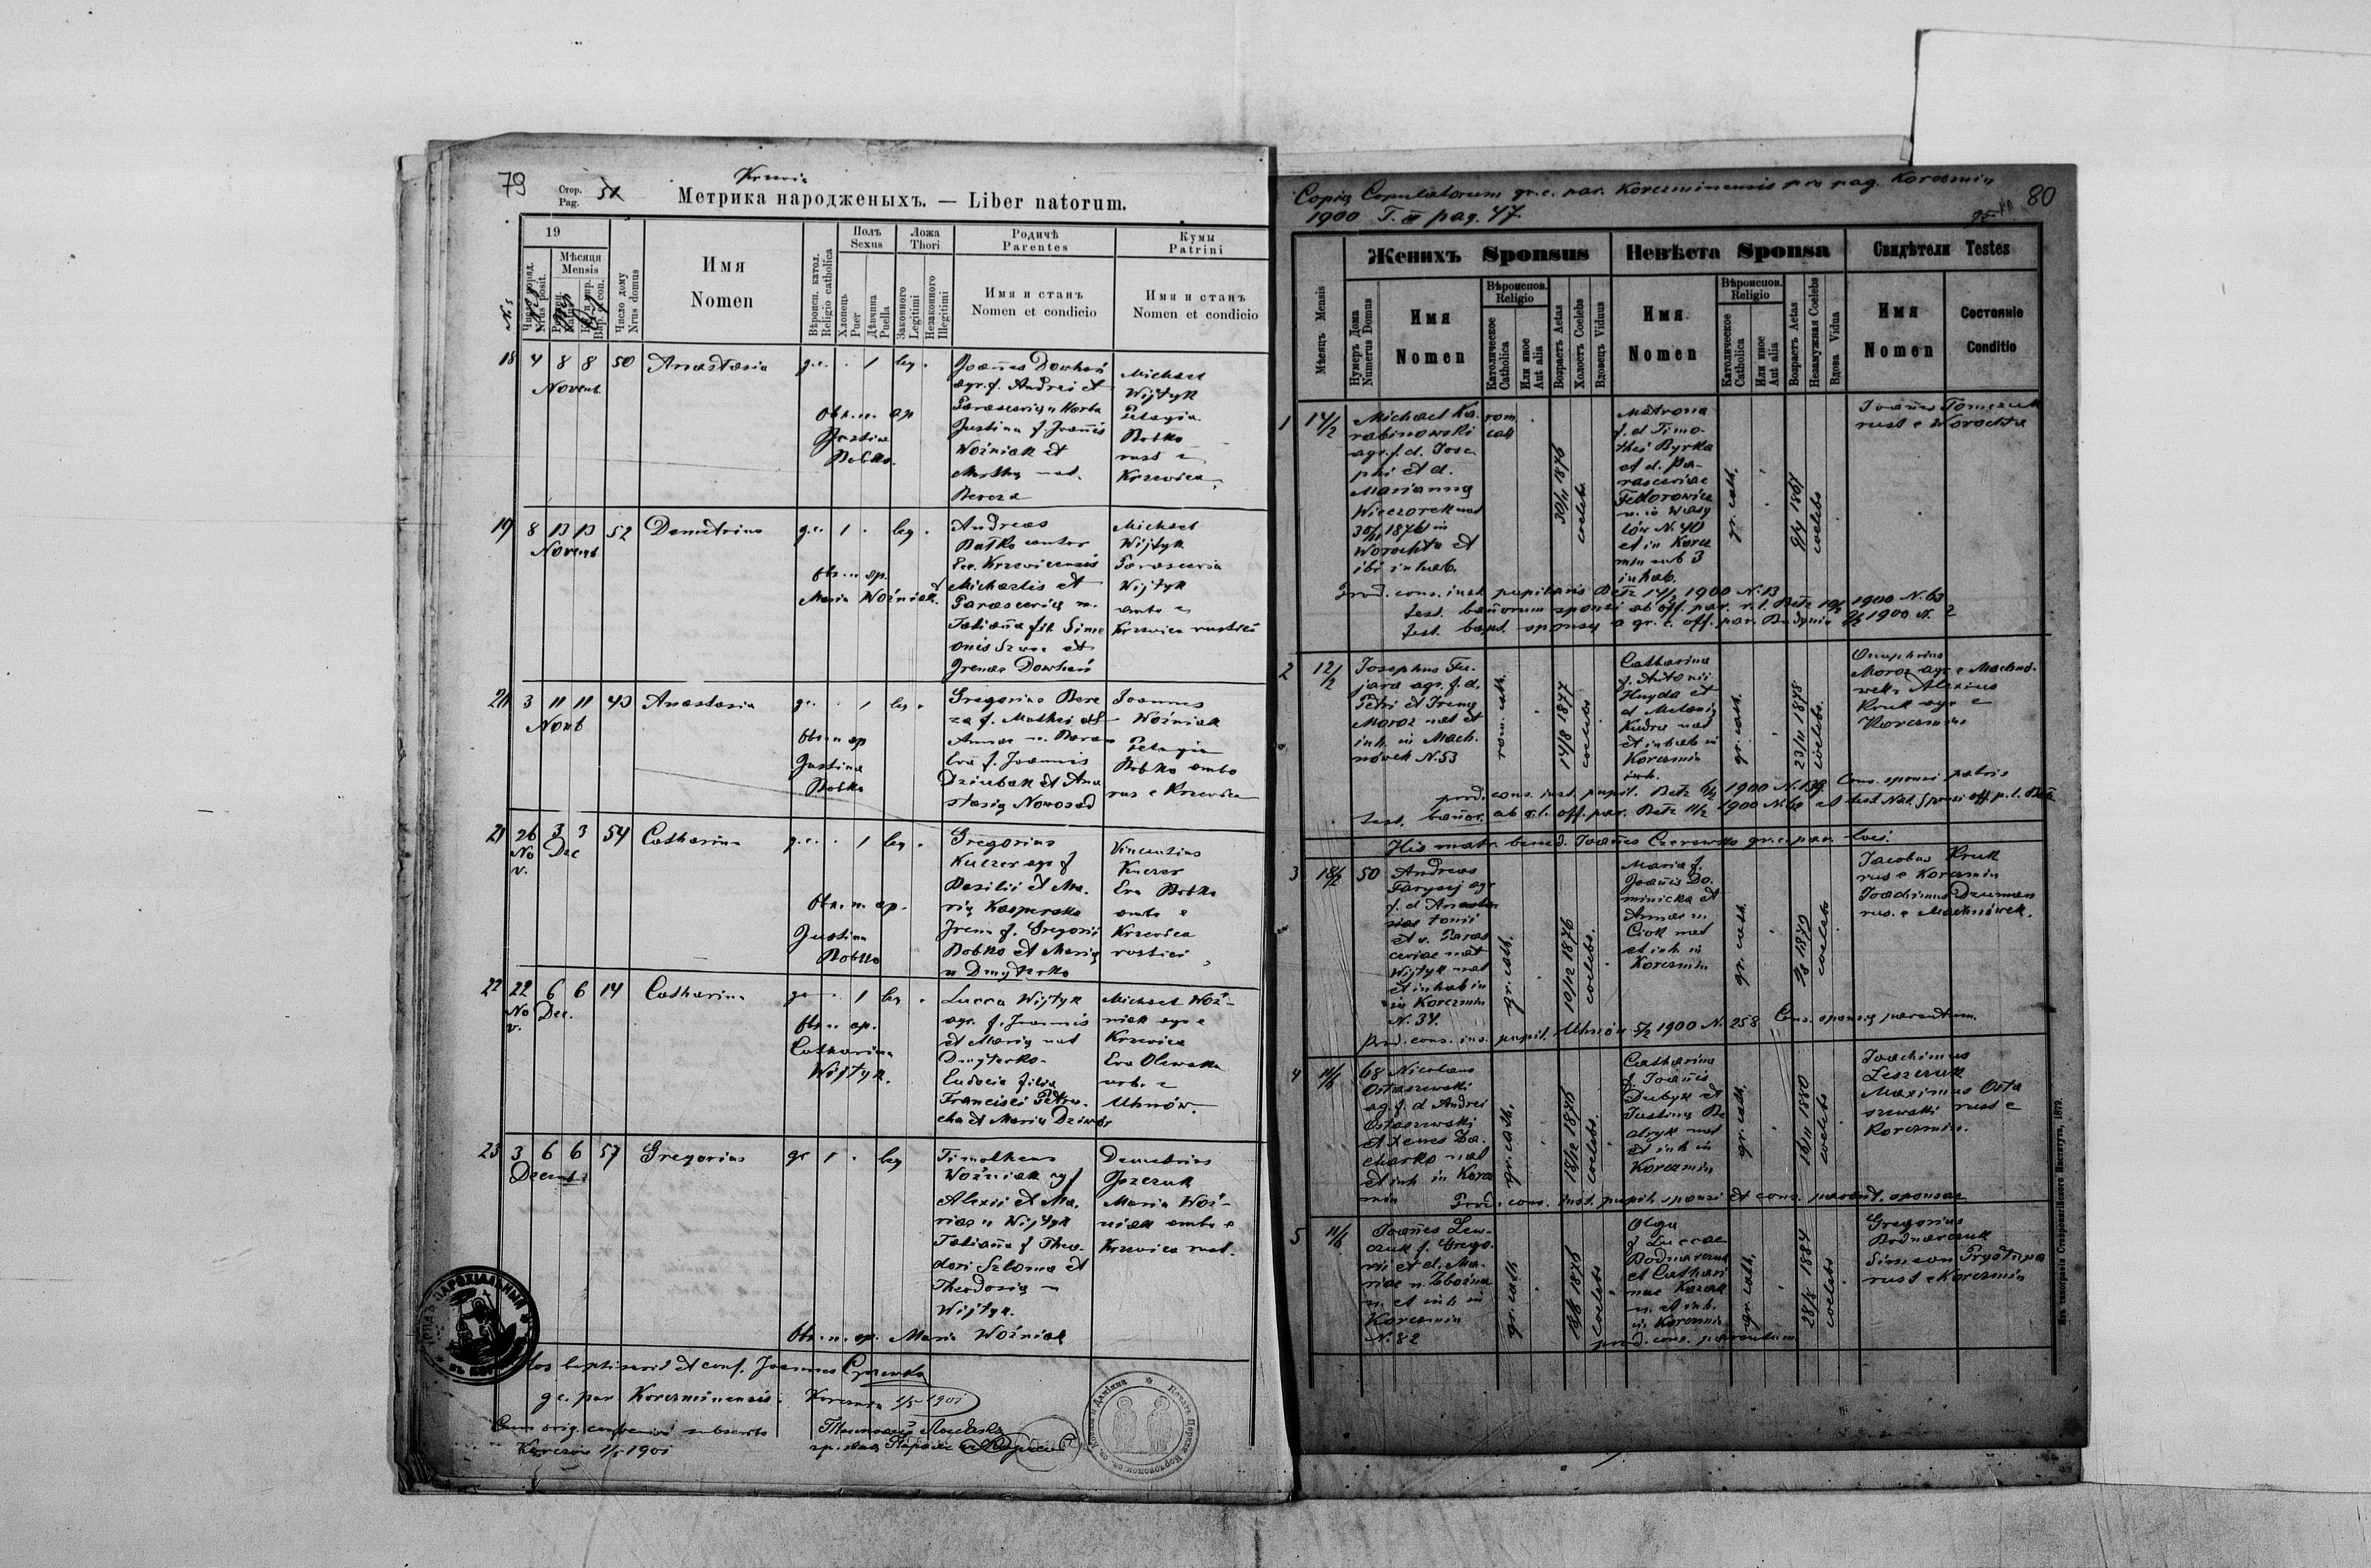 79
Стор.
Pag.
Krzewica
Метрика народженыхъ. — Liber natorum.
19
Число поряд.
Nrus posit.
Мѣсяця
Mensis
Число дому
Nrus domus
Имя
Nomen
Вѣроисп. катол.
Religio catholica
Полъ
Sexus
Хлопець
Puer
Дѣвчина
Puella
Ложа
Thori
Законного
Legitimi
Незаконного
Illegitimi
Родичѣ
Parentes
Имя и станъ
Nomen et condicio
Кумы
Patrini
Имя и станъ
Nomen et condicio
18 4 8 8 50 Anastasia g.c. . 1 leg .
Novemb.
obs. n. ap
Justina
Bobko.
Joañes Dowhań
agr. f. Andrei et
Parascevią n Horba
Justina f. Joañis
Woźniak et
Marthą nat.
Bereza
Michael
Wijtyk
Pelagia
Bobko
rust e
Krzewica
19 8 13 13 52 Demetrius g.c. 1 . leg .
Novemb
obs. n ap.
Maria Woźniak.
Andreas
Batko cantor
Ecc. Krzewicensis
Michaelis et
Parascevią n.
Tatiaña fil. Sime
onis Szwec et
Irenae Dowhań
Michael
Wijtyk
Parascevia
Wijtyk
ambo e
Krzewica rustici
20 3 11 11 43 Anastasia gc. . 1 leg .
Novb
obs. n ap
Justina
Bobko
Gregorius Bere
za f. Mathei et
Annae n. Baran
Eva f. Joannis
Dziubak et Ana
stasią Nowosad
Joannes
Woźniak
Pelagia
Bobko ambo
rus e Krzewica
21 26 3 3 54 Catharina g.c. . 1 leg .
No Dec
v.
obs. n. ap.
Justina
Bobko
Gregorius
Kuczer agr f
Basilii et Ma.
rią Kasperska
Irena f. Gregorii
Bobko et Marią
n Dmyterko
Vincentius
Kuczer
Eva Bobko
ambo e
Krzewica
rustici
22 22 6 6 14 Catharina gc . 1 leg .
No Dec.
v.
obs. n ap.
Catharina
Wijtyk.
Lucca Wijtyk
agr. f. Joannis
et Marią nat
Dmyterko.
Eudocia filia
Francisci Petru.
cha et Marią Dziwda
Michael Woź-
niak agr e
Krzewica
Eva Olewska
urb. e
Uhnów.
23 3 6 6 57 Gregorius gc 1 . leg
Decemb
Timotheus
Woźniak ag f
Alexii et Ma.
riae n Wijtyk
Tatiaña f Theo.
dori Szloma et
Theodorią
Wijtyk.
Demetrius
Maria Woź-
niak ambo e
Krzewica rust.
obs. n. ap. Maria Woźniak
Hos baptisavit et conf. Joannes Czerewko
gc. par Korczminensis. Korczmin 1/5 1901
Cum orig. subscribo
1/5 1901
80
Copią Copulatorum gr. c. par. Korczminensis pro pag. Korczmin
1900 T. II pag. 47.
Мѣсяцъ Mensis
Женихъ Sponsus
Нумеръ Дома
Numerus Domus
Имя
Nomen
Вѣроиспов.
Religio
Католическое
Catholica
Или иное
Aut alia
Возрастъ Aetas
Холостъ Coelebs
Вдовецъ Viduus
Невѣста Sponsa
Имя
Nomen
Вѣроиспов.
Religio
Католическое
Catholica
Или иное
Aut alia
Возрастъ Aetas
Незамужная Coelebs
Вдова Vidua
Свидѣтели Testes
Имя
Nomen
Состояніе
Conditio
1 14/2
Michael Ka.
rabinowski
agr. f. d. Jose
phi et d.
Marianną
Wieczorek nat
30/11 1876 in
Worochta et
ibi inhab.
rom.
cath
30/11 1876
coelebs.
Matrona
f. d Timo-
thei Byrka
et d. Pa-
rasceviae
Fedorowicz
n. in Wasy
lów N. 40
et in Korcz
min sub 3
inhab.
gr. cath.
coelebs
Joañes Tomczuk
rust e Worochta
Prod. cons. inst. pupilaris Bełz 14/2 1900 N. 13
test. bañorum sponsi ab off. par. r. l. Bełz 19/2 1900 N. 63
test. bapt. sponsą a gr. c. off. par. Budynin 1900 N. 2
2 12/2
Josephus Fu-
jara agr. f. d.
Petri et Ireną
Moroz nat et
inh. in Mach-
nówek N. 53
rom. cath.
14/8 1877
coelebs
Catharina
f. Antonii
Huyda et
d Melanią
Kudra nat
et inhab in
Korczmin
gr. cath.
23/11 1878
coelebs.
Onuphrius
Moroz agr e Machnó-
wek, Alexius
Kruk agr e
Korczmin
prod. cons. inst. pupil. Bełz 1900 N. 139. Cons. sponsi patris
test. bañor. ab r. l. off. par. Bełz 11/2 1900 N. 62 et test Nat. sponsi off. p. l. Bełz
His matr. bened. Joañes Czerewko gr. c. par. loci.
3 18/2 50
Andreas
Farysij agr
f. d Anasta
et v. Paras
ceviae nat
Wijtyk nat
et inhab in
in Korczmin
N. 34.
gr. cath.
10/12 1876
coelebs.
Maria f.
Joañis Do.
minicka et
Annae n.
Ciok nat
et inh in
Korczmin
gr. cath.
coelebs
Jacobus Kruk
rus e Korczmin
Joachimus Dzuman
rus. e Machnówek.
Prod. cons. ins. pupil. Uhnów 5/2 1900 N. 258 Cons. sponsą parentum.
4 11/6 68
Nicolaus
Ostaszewski
ag. f. d Andrei
Ostaszewski
et Xenes Za.
charko nat
et inh in Korcz
min
gr. cath.
18/12 1876
coelebs.
Catharina
f. Joañis
Dubyk et
Justiną Be
nat
et inh in
Korczmin
gr. cath.
16/11 1880
coelebs
Joachimus
Leszczuk
Maximus Osta
szewski rust e
Korczmin.
Prod. cons. inst. pupil. sponsi et cons. parent. sponsae
5 11/6
Joañes Lew-
czuk f. Grego.
rii et d. Ma-
riae n. Zbożna
n. et inh in
Korczmin
N. 82
gr. cath
1876
coelebs
Olga
f Luccae
Bodnarczuk
et Cathari
nae Kozak
n. et inh.
in Korczmin
gr. cath.
1884
coelebs
Gregorius
Bodnarczuk
Simeon Prystupa
rust e Korczmin
prod. cons. parentum
Изъ типографіи Ставропигійского Института, 1879.